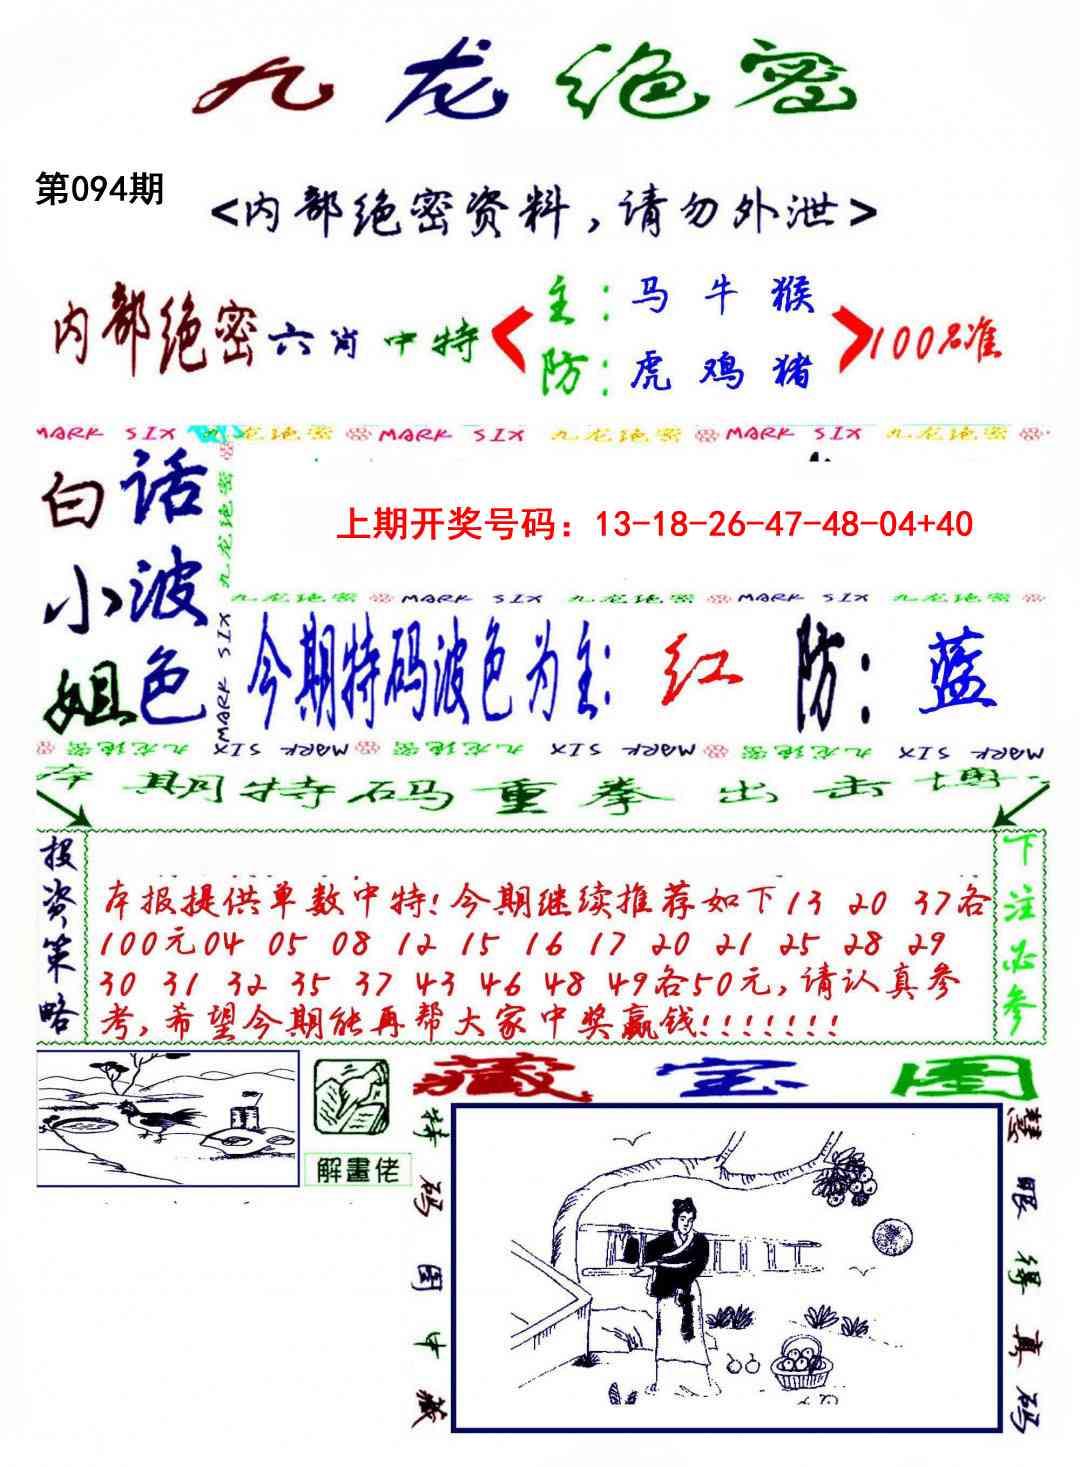 九龙绝密
第094期
<内部绝密资料,请勿外泄>
内部绝密六肖中特
主:马 牛 猴
防:虎 鸡 猪
100名准
MARK SIX 九龙绝密 MARK SIX 九龙绝密 MARK SIX 九龙绝密
白话
小波
姐色
九龙绝密
MARK SIX
上期开奖号码：13-18-26-47-48-04+40
九龙绝密 MARK SIX 九龙绝密 MARK SIX 九龙绝密
今期特码波色为主: 红 防: 蓝
九龙绝密 MARK SIX 九龙绝密 MARK SIX 九龙绝密 MARK SIX
本期特码重拳出击博
投资策略
本报提供单数中特!今期继续推荐如下13 20 37各
100元04 05 08 12 15 16 17 20 21 25 28 29
30 31 32 35 37 43 46 48 49各50元,请认真参
考,希望今期能再帮大家中奖赢钱!!!!!!!
下注必参
解畫佬
藏宝图
特码图中藏
慧眼得真码